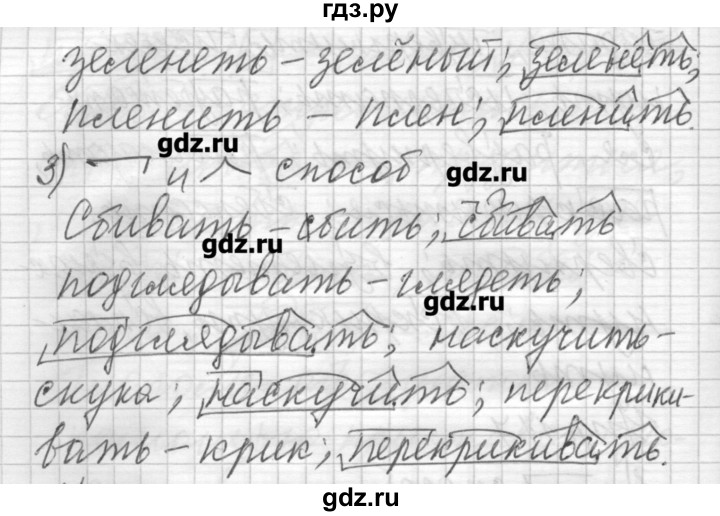 гдз.ру
зеленеть – зелёный; зеленеть;
пленить – плен; пленить.
gdz.ru
3) и способ
gdz.ru
Сбивать – сбить; сбивать
gdz.ru
подглядывать – глядеть;
gdz.ru
подглядывать; наскучить –
скука; наскучить; перекрики-
вать – крик; перекрикивать.
gdz.ru